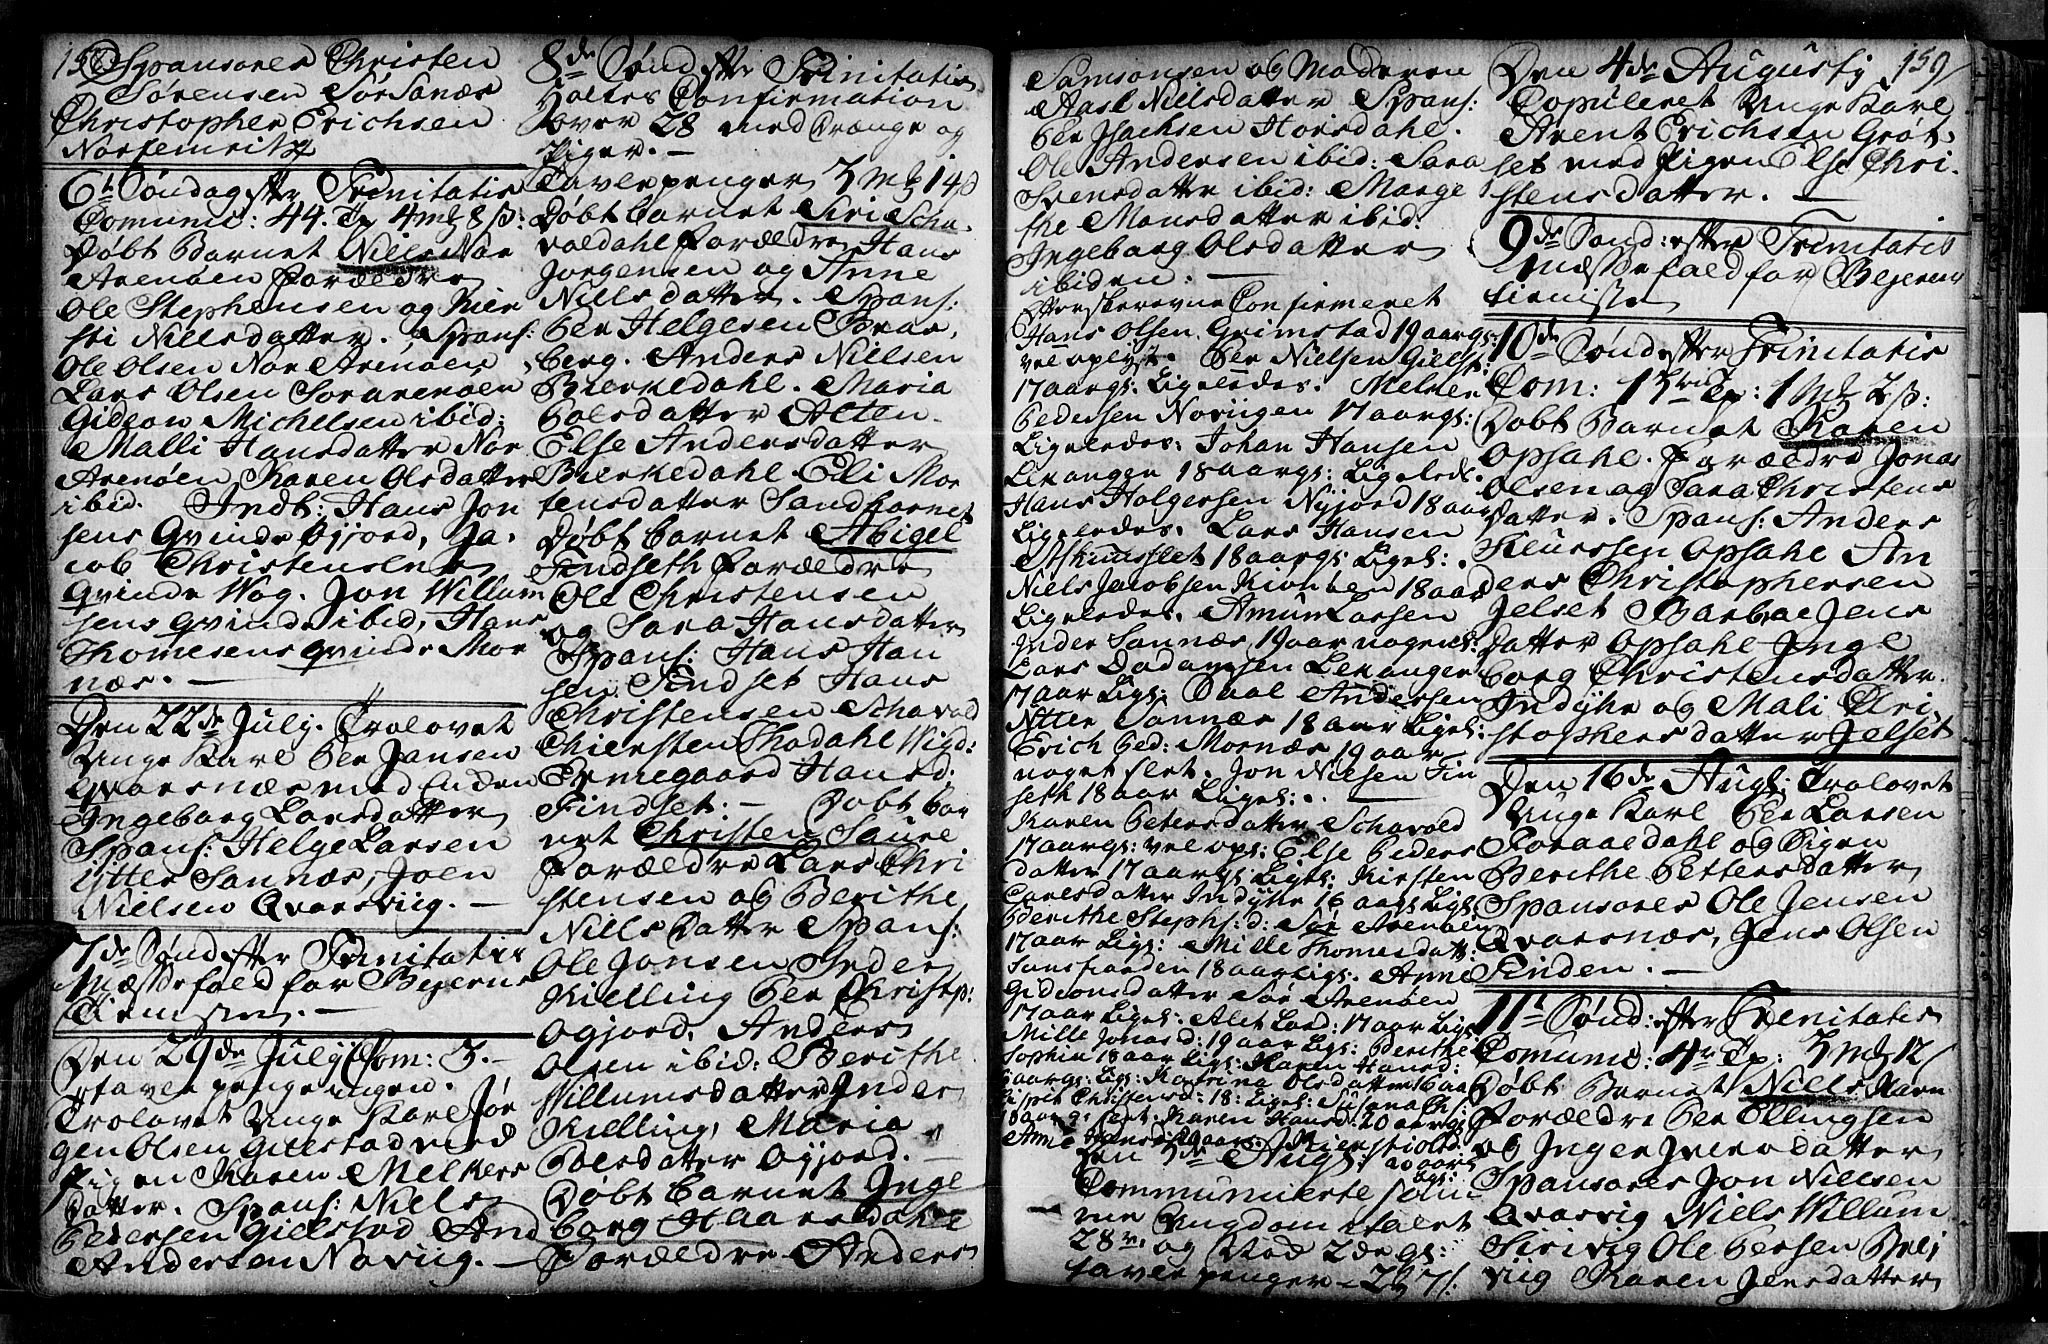 158
Spansores Christen
Sørensen Sør Sanæs
Christopher Erichsen
6t Søndag efter Trinitatis
Comunic: 44. Tp 4 mk 8 s:
Døbt Barnet Niels Nor
Arenøen Forældre
Ole Stephensen og Kier
sti Nielsdatter. Spans:
Ole Olsen Nor Arenøen
Lars Olsen Sørarenøen
Gideon Michelsen ibid:
Malli Hansdatter Nor
Arenøen Karen Olsdatter
ibid. Indl: Hans Jon
sens Qvinde Ogjord, Ja-
cob Christensens
Qvinde Wog. Jon Willum
sens Qvinde ibid, Hans
Thomesens Qvinde Mor
næs. —
Den 22de July. Trolovet
Unge Karl Per Jansen
Qvarsnæs med Enchen
Ingeborg Larsdatter
Spans: Helge Larsen
Ytter Sannæs, Joen
Nielsen Qvarsviig. —
7de Sønd efter Trinitatis
Mæssefald for Bejerns
Den 29de July Com: 3. —
Tavlepenge ingen.
Trolovet Unge Karl Jør
gen Olsen Gillestad med
Pigen Karen Melkers
datter. Spans: Niels
Pedersen Gielstad And
Andersen Noviig. —
8de Sønd efter Trinitatis
Holtes Confirmation
over 28 med Drænge og
Piger. —
Tavlepenger 3 mk 14 s
Døbt Barnet Siri Scha-
voldahl Forældre Hans
Jorgensen og Anne
Nielsdatter. Spans:
Per Helgesen Bras-
berg. Anders Nielsen
Bierkedahl. Maria
Poelsdatter Alten-
Else Andersdatter
Bierkedahl Eli Mor
tensdatter Sandhornet
Døbt Barnet Abigel
Findseth Forældre
Ole Christensen
og Sara Hansdatter
Spans: Hans Han
sen Findset Hans
Christensen Schavold
Chiersten Thodahl Wigd:
Ermegaard Hansd.
Findset: — Døbt Bar
net Christen Saure
Forældre Lars Chri
stensen og Berithe
Nielsdatter Spans:
Ole Jonsen Inder
Kielling Per Christp:
Ogjord, Anders
Olsen ibid: Berithe
Willumsdatter Inder
Kielling, Maria
Poelsdatter Ogjord. —
Døbt Barnet Inge
borg Haarsdahl
Forældre Anders
Samsonsen og Moderen
Aasl Nielsdatter Spans:
Per Isachsen Horsdahl.
Ole Andersen ibid: Sara
Svensdatter ibid: Marge
the Monsdatter ibid:
Ingeborg Olsdatter
ibiden. —
Efterskrevne Confirmeret
Hans Olsen Grimstad 19 aargs:
vel oplyst. Per Nielsen Gielst:
17 aargs: Ligeledes. Melker
Pedersen Noviigen 17 aargs:
Ligeledes: Johan Hansen
Lekangen 18 aargs: Ligelede.
Hans Holgersen Nyjord 18 aar
Ligeledes. Lars Hansen
18 aargs: Ligel:
Niels Jacobsen 18 aar
Ligeledes. Amun Larsen
Inder Sannæs 19 aar
Lars Lekangen
17 aar Ligs: Paal Andersen
Ytter Sannæs 18 aar Ligel:
Erich Ped: Mornæs 19 aar
noget slet. Jon Nielsen Fin
seth 18 aar Ligel: —
Karen Petersdatter Schavold
17 aargs: vel opl: Else Peders
datter 17 aargs Ligel: Kirsten
Carlsdatter Indyhr 16 aars Ligs:
Berithe Stephs:d: Sør Arenøen
17 aar Ligs: Mille Thomesdatt:
18 aar Ligs: Anne
Gideonsdatter Sør Arenøen
17 aar Ligel: Alet Larsd: 17 aar Ligs
Mille Jonasd: 19 aar Ligs: Berithe
18 aar Ligs: Karen Hansd:
aargs: Ligs: Olsdatter 16 aar
Christensd: 18: Ligel: Susana
18 aargs slet. Karen Hansd: 20 aargs
Anne
Den 3de Augs:
Communicerte som
me Ungdom
28r. og
tavlepenger
159
Den 4de Augusty
Copuleret Unge Karl
Arent Erichsen Grøt-
set med Pigen Else Chri-
stensdatter. —
9de Sønd: efter Trinitatis
Mæssefald for Bejerns
10de Sønd efter Trinitatis
Com: Tp: 1 mk 2 s:
Døbt Barnet Karen
Opsahl. Forældre Jonas
Olsen og Sara Christens
datter. Spans: Anders
Opsahl An
ders Christophersen
Jelset Barbae Jens
datter Opsahl Inge
borg Christensdatter
Indyhr og Mali Chri-
stophersdatter Jelset
Den 16de Augs: Trolovet
Unge Karl Per Larsen
og Pigen
Berithe Pettersdatter
Spansores Ole Jensen
Qvarsnæs, Jens Olsen
Finden. —
11t Sønd: efter Trenitatis
Comunic: 4r Tp: 3 mk 12
Døbt Barnet Niels
Forældre Per Ellingsen
og Inger Iversdatter
Spansores Jon Nielsen
Qvarvig Niels Willum
Ole Persen
viig Karen Jensdatter